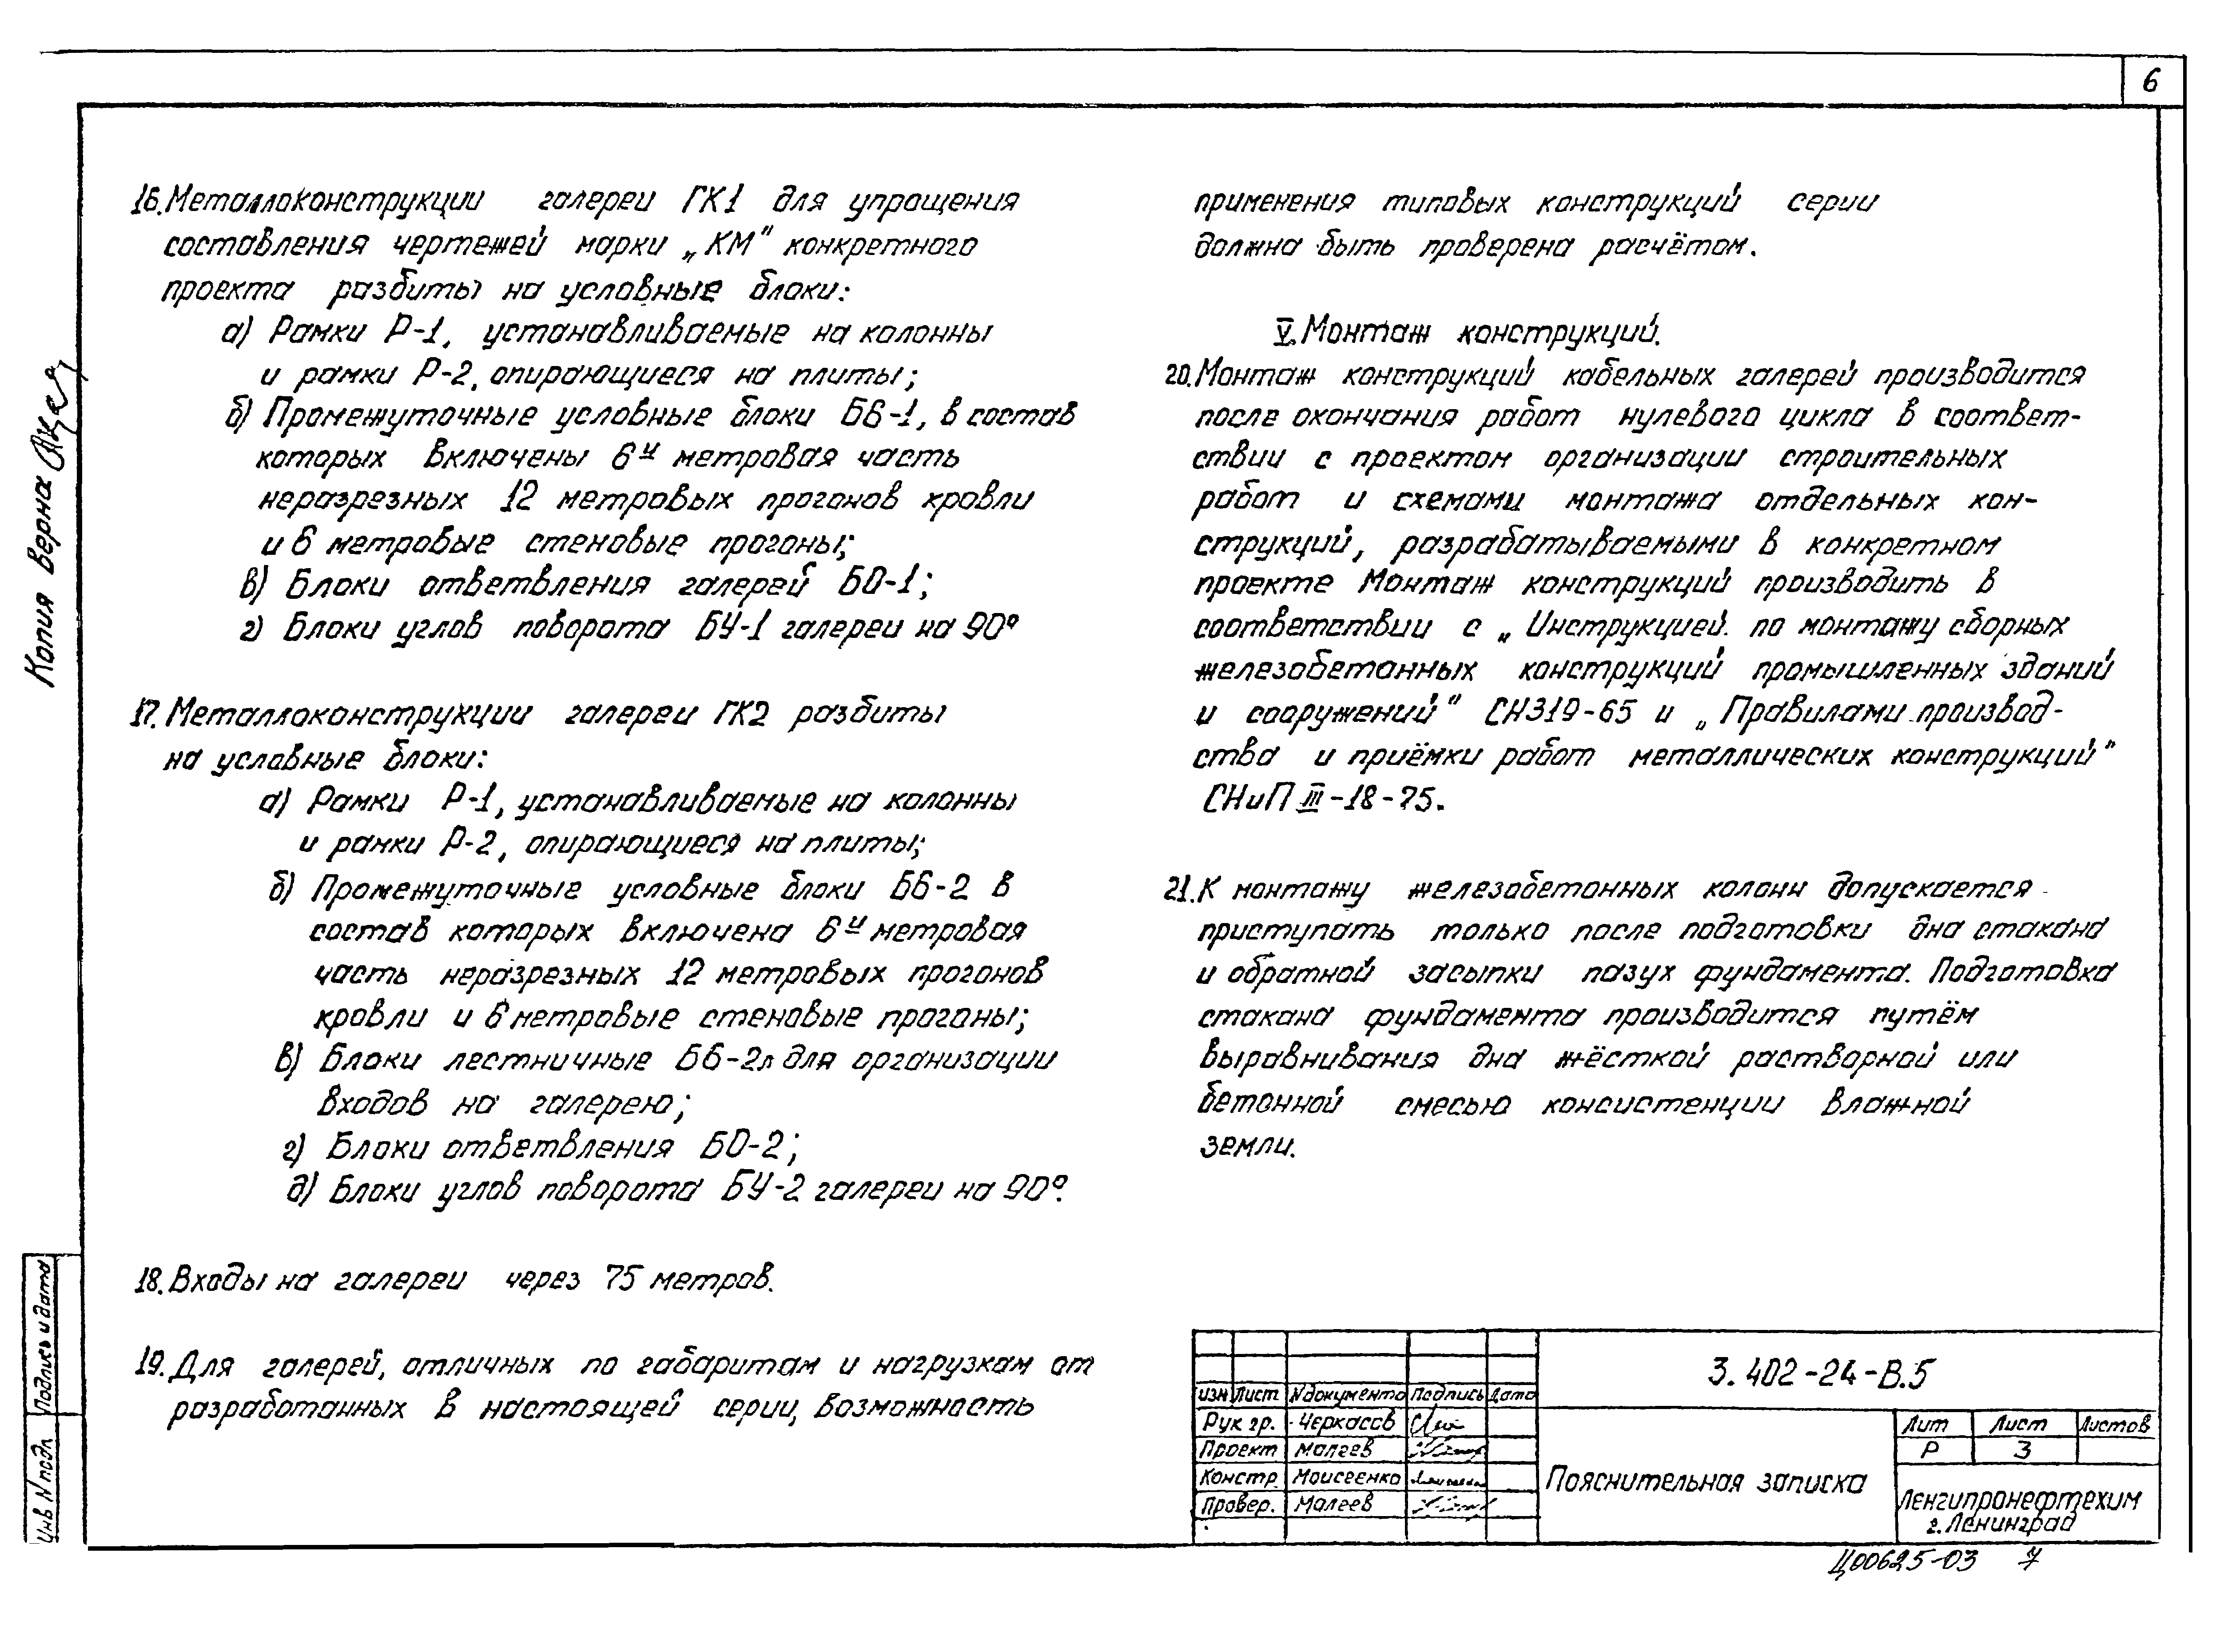 6
16. Металлоконструкции галереи ГК1 для упрощения
составления чертежей марки „КМ" конкретного
проекта разбиты на условные блоки:
а) Рамки Р-1, устанавливаемые на колонны
и рамки Р-2, опирающиеся на плиты;
б) Промежуточные условные блоки Б6-1, в состав
которых включены 6и метровая часть
неразрезных 12 метровых прогонов кровли
и 6 метровые стеновые прогоны;
в) Блоки ответвления галерей БО-1;
г) Блоки углов поворота БУ-1 галереи на 90°
17. Металлоконструкции галереи ГК2 разбиты
на условные блоки:
а) Рамки Р-1, устанавливаемые на колонны
и рамки Р-2, опирающиеся на плиты;
б) Промежуточные условные блоки Б6-2 в
состав которых включена 6и метровая
часть неразрезных 12 метровых прогонов
кровли и 6 метровые стеновые прогоны;
в) Блоки лестничные Б6-2л для организации
входов на галерею;
г) Блоки ответвления БО-2;
д) Блоки углов поворота БУ-2 галереи на 90°.
18. Входы на галереи через 75 метров.
19. Для галерей, отличных по габаритам и нагрузкам от
разработанных в настоящей серии, возможность
применения типовых конструкций серии
должна быть проверена расчётом.
V. Монтаж конструкций.
20. Монтаж конструкций кабельных галерей производится
после окончания работ нулевого цикла в соответ-
ствии с проектом организации строительных
работ и схемами монтажа отдельных кон-
струкций, разрабатываемыми в конкретном
проекте Монтаж конструкций производить в
соответствии с „Инструкцией. по монтажу сборных
железобетонных конструкций промышленных зданий
и сооружений" СН319-65 и „Правилами производ-
ства и приёмки работ металлических конструкций"
СНиП III-18-75.
21. К монтажу железобетонных колонн допускается
приступать только после подготовки дна стакана
и обратной засыпки пазух фундамента. Подготовка
стакана фундамента производится путём
выравнивания дна жёсткой растворной или
бетонной смесью консистенции влажной
земли.
Копия верна
Подпись и дата
Инв N подл
3.402-24-В.5
Изм Лист N документа Подпись Дата
Рук гр. Черкасов
Проект Малеев
Констр Моисеенко
Провер. Малеев
Пояснительная записка
Лит Лист Листов
Р 3
Ленгипронефтехим
г. Ленинград
Ц00625-03 7